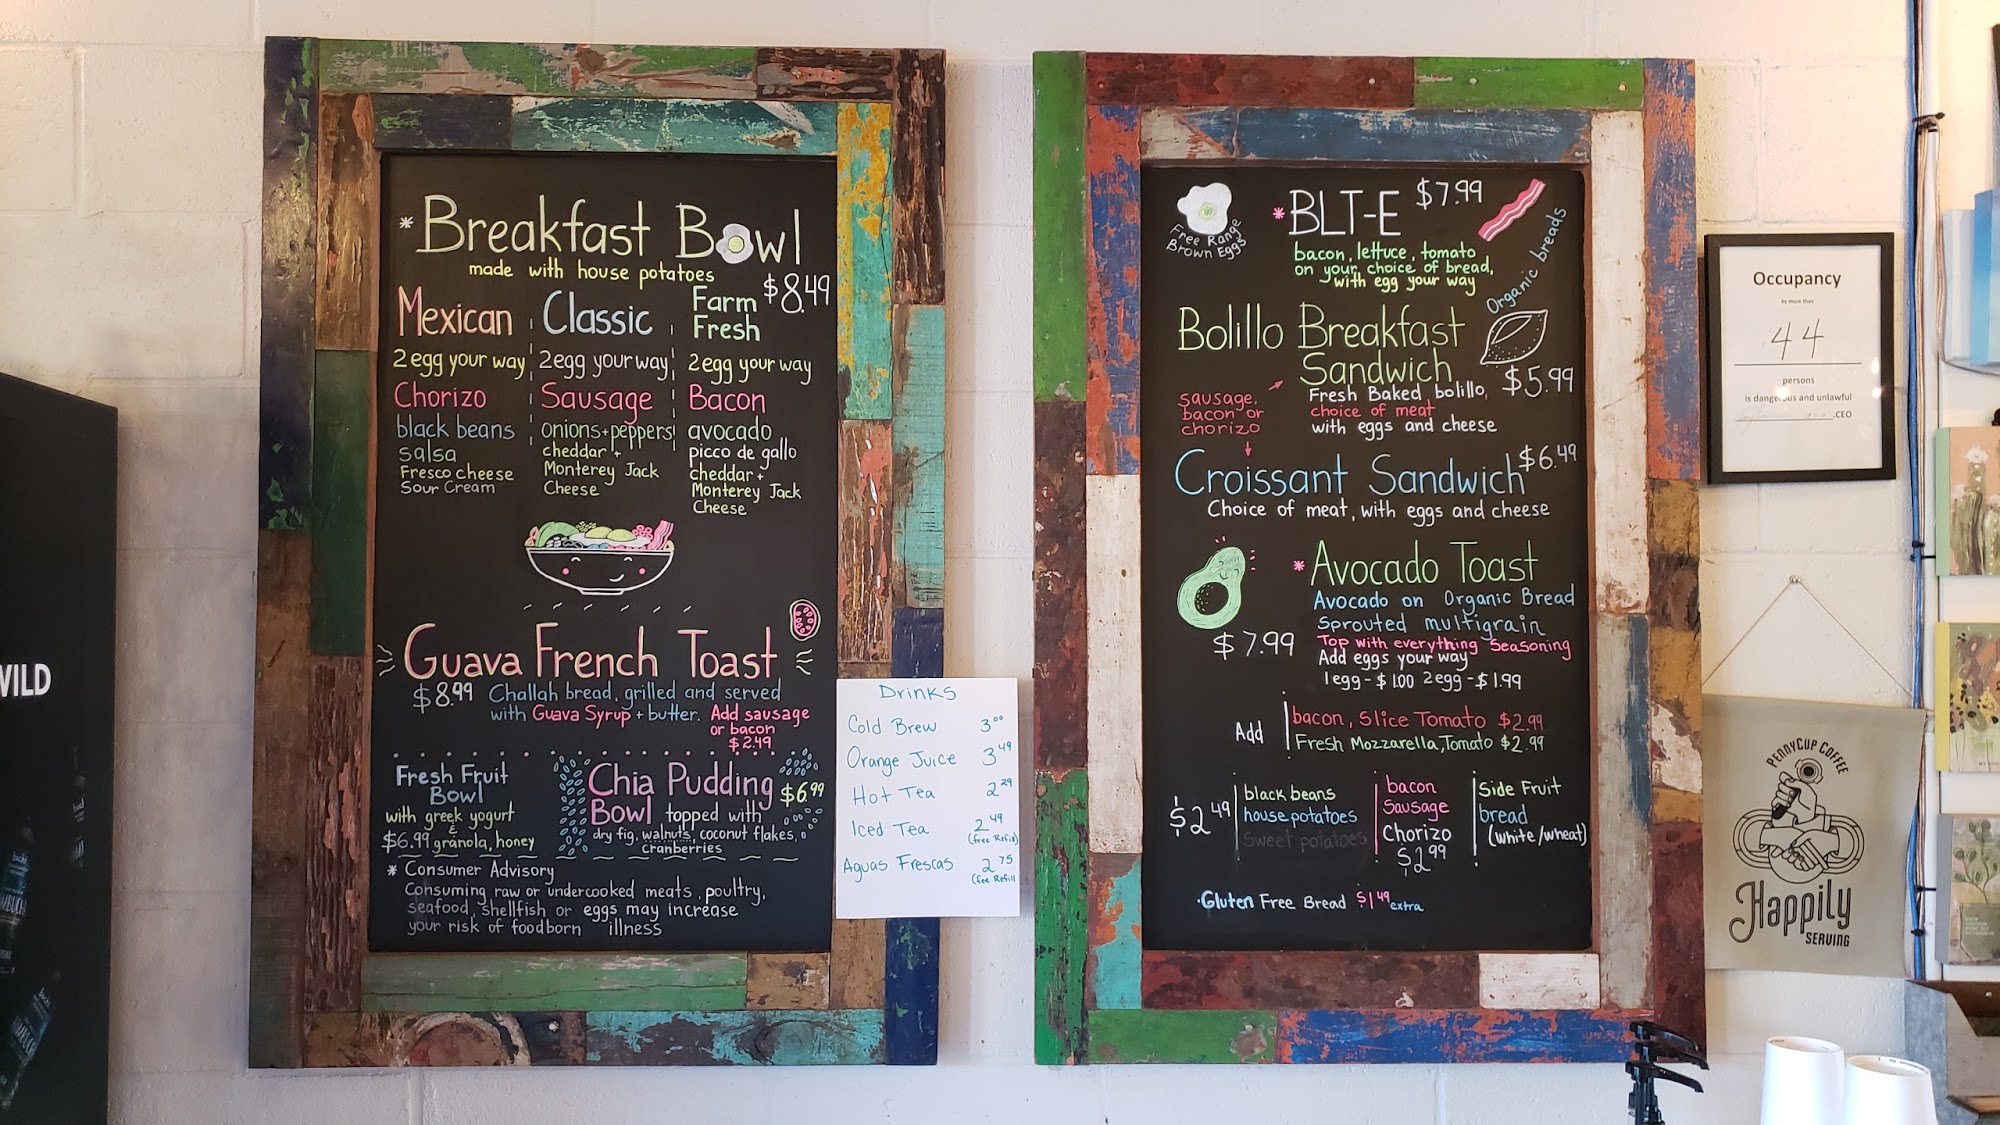 * Breakfast Bowl
made with house potatoes
$8.49
Mexican
2 egg your way
Chorizo
black beans
salsa
Fresco cheese
Sour Cream
Classic
2 egg your way
Sausage
onions + peppers
cheddar +
Monterey Jack
Cheese
Farm
Fresh
2 egg your way
Bacon
avocado
picco de gallo
cheddar +
Monterey Jack
Cheese
Guava French Toast
$8.99 Challah bread, grilled and served
with Guava Syrup + butter. Add sausage
or bacon
$2.49
Fresh Fruit
Bowl
with greek yogurt
&
$6.99 granola, honey
Chia Pudding $6.99
Bowl topped with
dry fig, walnuts, coconut flakes,
cranberries
* Consumer Advisory
Consuming raw or undercooked meats, poultry,
seafood, shellfish or eggs may increase
your risk of foodborn illness
Drinks
Cold Brew 3.00
Orange Juice 3.49
Hot Tea 2.29
Iced Tea 2.49
(free Refill)
Aguas Frescas 2.75
(fee Refill
Free Range
Brown Eggs
* BLT-E $7.99
bacon, lettuce, tomato
on your choice of bread,
with egg your way
Organic breads
Bolillo Breakfast
Sandwich
$5.99
Fresh Baked bolillo,
choice of meat
with eggs and cheese
sausage,
bacon or
chorizo
Croissant Sandwich $6.49
Choice of meat, with eggs and cheese
* Avocado Toast
Avocado on Organic Bread
Sprouted multigrain
$7.99
Top with everything Seasoning
Add eggs your way
1 egg - $1.00 2 egg - $1.99
Add
bacon, Slice Tomato $2.99
Fresh Mozzarella, Tomato $2.99
$2.49
black beans
house potatoes
Sweet potatoes
bacon
Sausage
Chorizo
$2.99
Side Fruit
bread
(white/wheat)
·Gluten Free Bread $1.49 extra
Occupancy
by more than
44
persons
is dangerous and unlawful
.CEO
PennyCup Coffee
Happily
SERVING
WILD